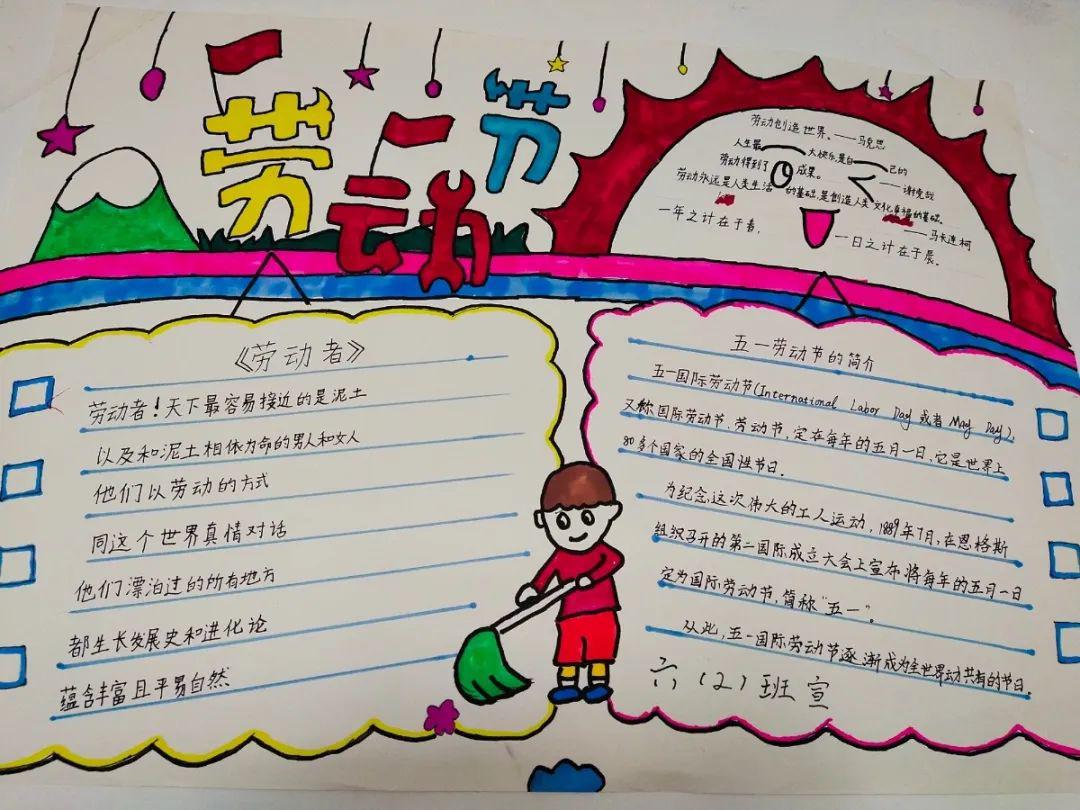 劳动节
劳动创造世界。——马克思
人生最大快乐是自己的
劳动得到了成果。——谢觉哉
劳动永远是人类生活的基础,是创造人类文化幸福的基础。
——马卡连柯
一年之计在于春,
一日之计在于辰。
《劳动者》
劳动者!天下最容易接近的是泥土
以及和泥土相依为命的男人和女人
他们以劳动的方式
同这个世界真情对话
他们漂泊过的所有地方
都生长发展史和进化论
蕴含丰富且平易自然
五一劳动节的简介
五一国际劳动节(International Labor Day 或者 May Day),
又称国际劳动节、劳动节,定在每年的五月一日,它是世界上
80多个国家的全国性节日。
为纪念这次伟大的工人运动,1889年7月,在恩格斯
组织召开的第二国际成立大会上宣布将每年的五月一日
定为国际劳动节,简称“五一”。
从此,五一国际劳动节逐渐成为全世界动共有的节日。
六(2)班宣